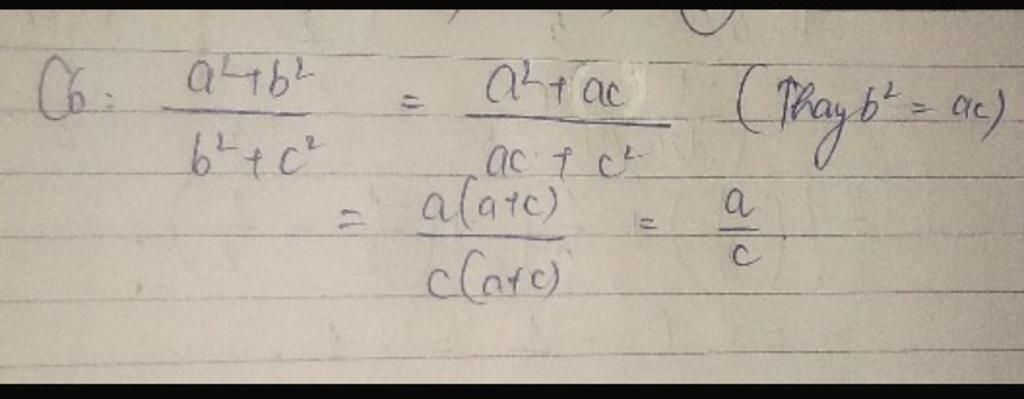 Có: a²+b² / b²+c² = a²+ac / ac+c² (Thay b² = ac)
= a(a+c) / c(a+c) = a / c